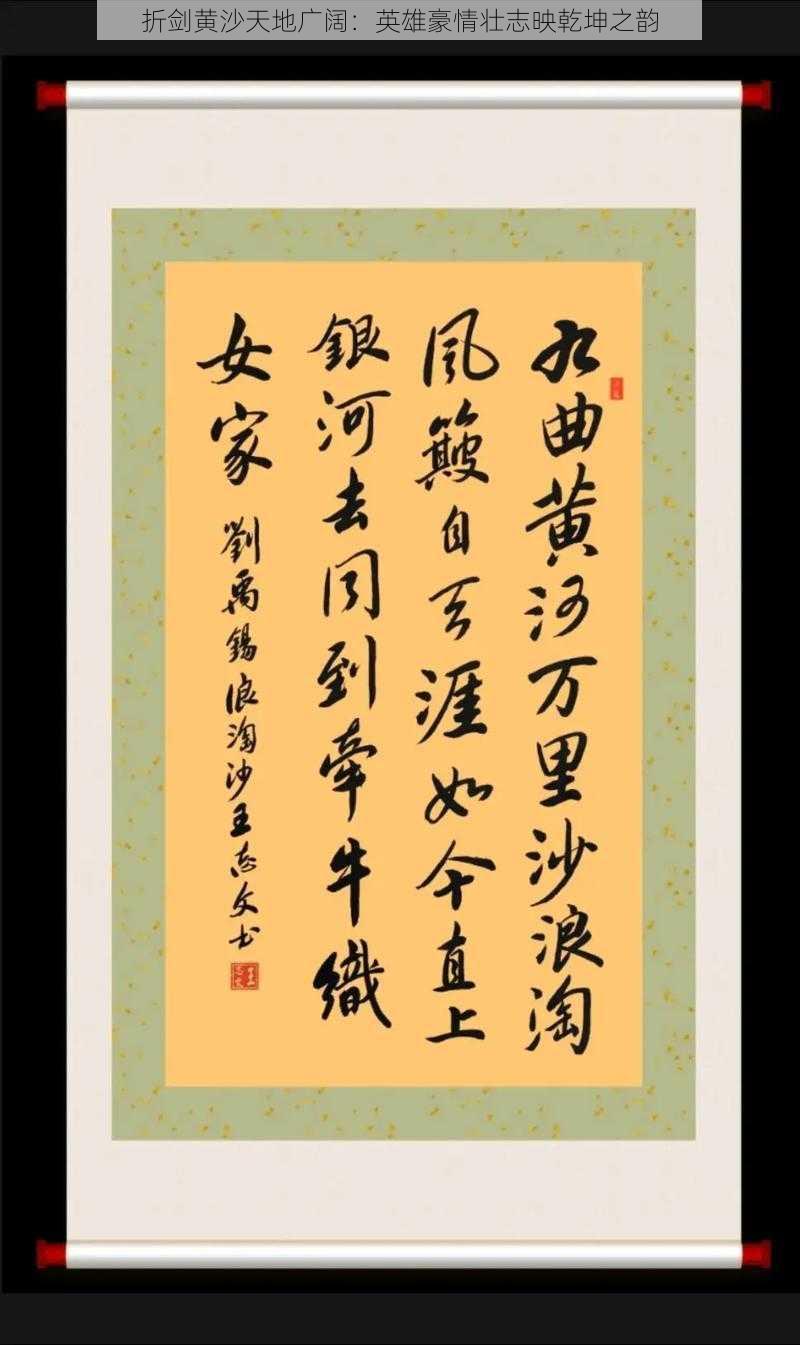 折剑黄沙天地广阔：英雄豪情壮志映乾坤之韵
九曲黄河万里沙浪淘
风簸自天涯如今直上
銀河去同到牽牛織
女家
劉禹錫浪淘沙王志文书